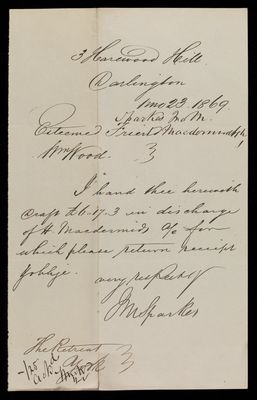 3 Harewood Hill
Darlington
7mo 23. 1869.
Sparkes J. M.
Esteemed Friend Macdermid H.
Wm Wood.
I hand thee herewith
draft £6.17.3 in discharge
of H Macdermids a/c for
which please return receipt
& oblige.
very respectly
JM Sparkes
The Retreat
York
ackd